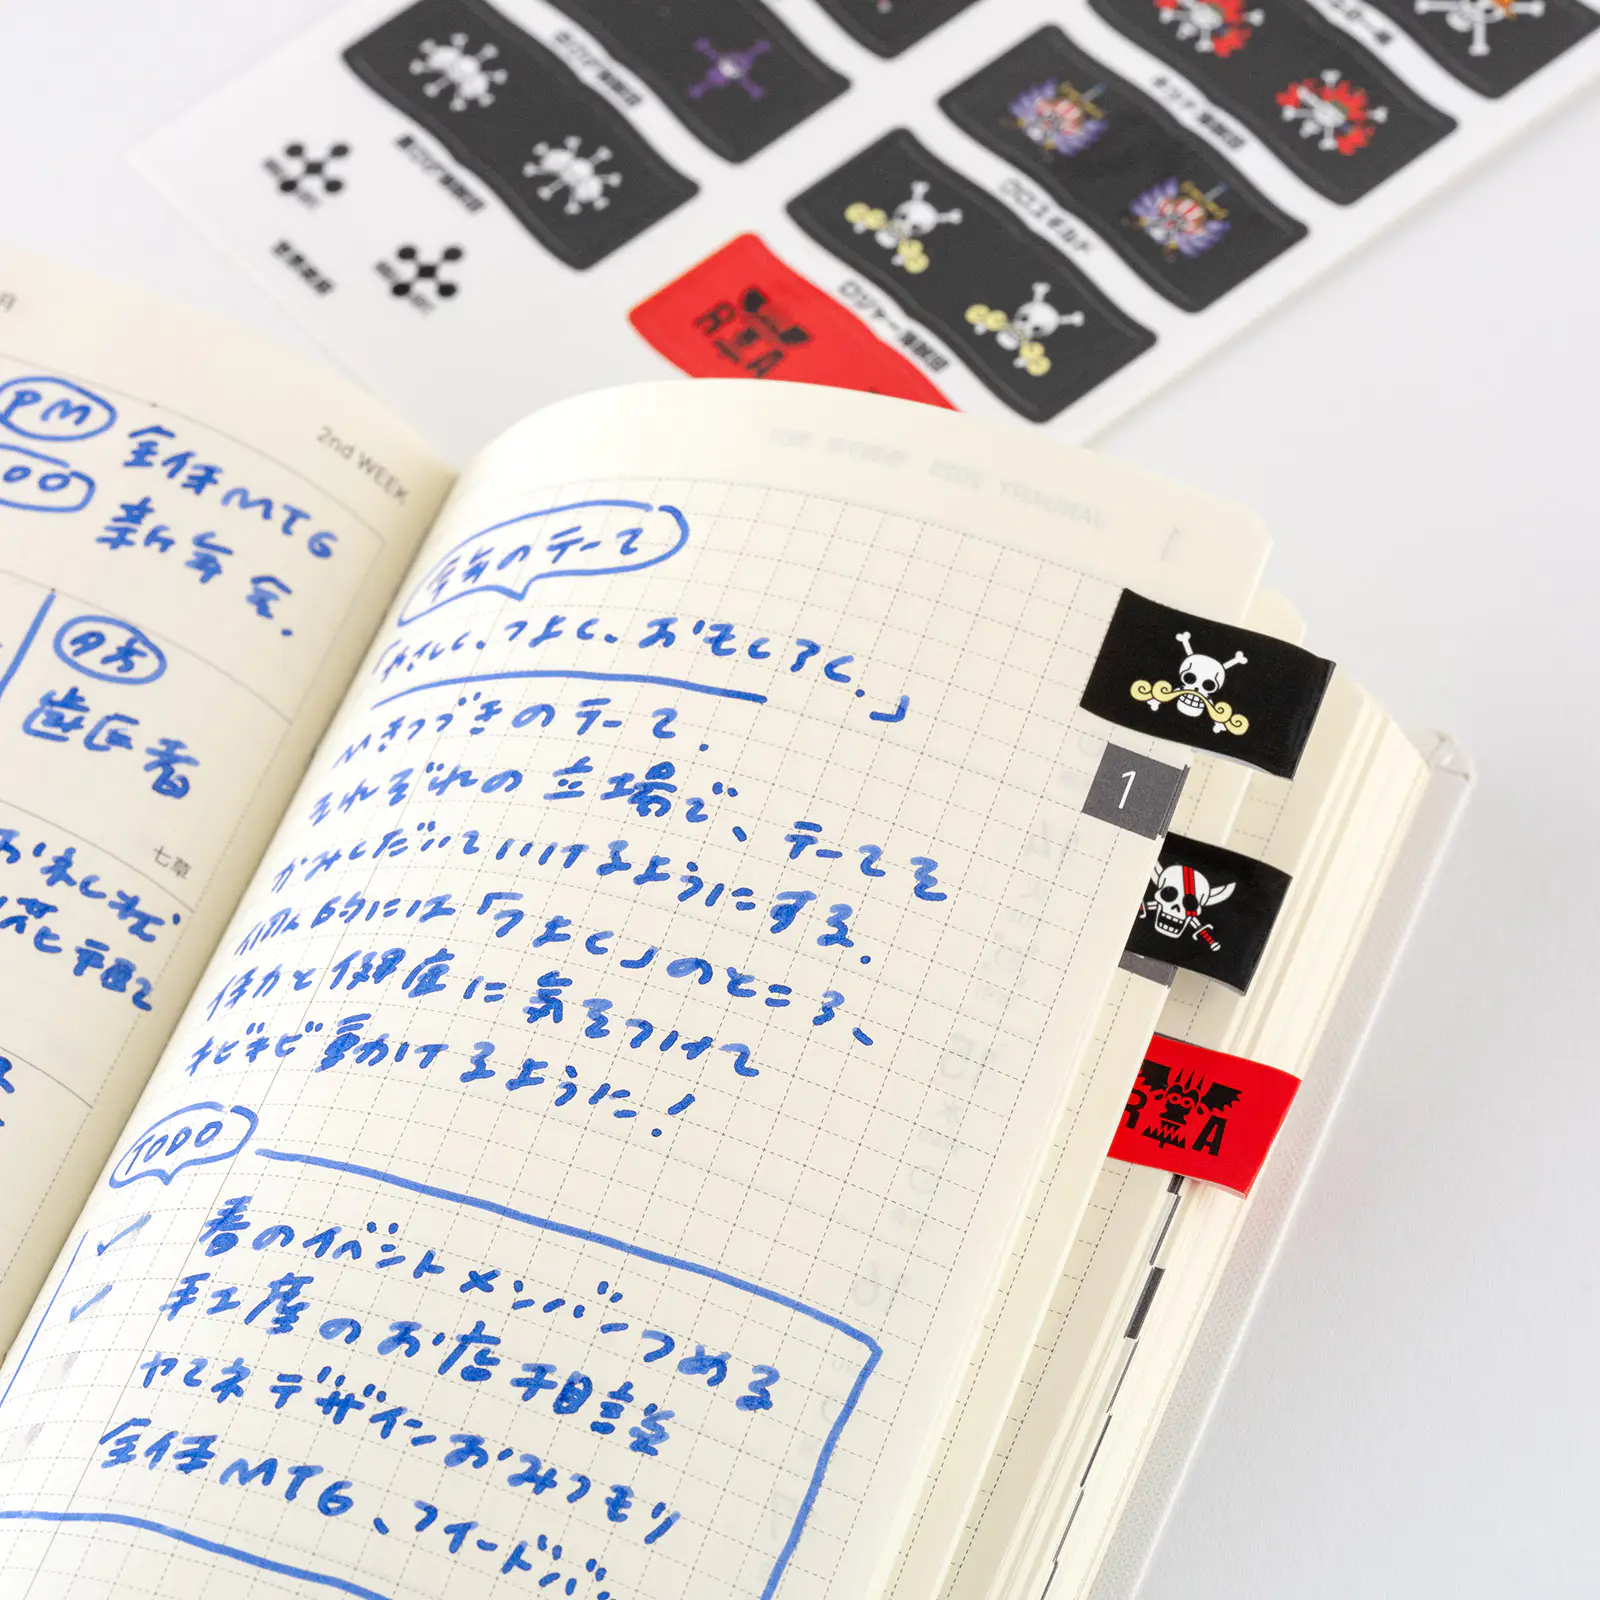 ロジャー海賊団
クロスギルド
キッド海賊団
世界政府
2nd WEEK
PM
全体MTG
00
新年会.
夕方
歯医者
七草
今年のテーマ
「やさしく、つよく、おもしろく.」
引きつづきのテーマ.
それぞれの立場で、テーマを
かみくだいていけるようにする.
個人的には「つよく」のところ、
体力と健康に気をつけて
キビキビ動けるように!
TODO
✓ 春のイベントメンバンつめる
✓ 手工産のお店相談
ヤマネデザインおみつもり
全体MTG、フィードバ
1
R A
R A